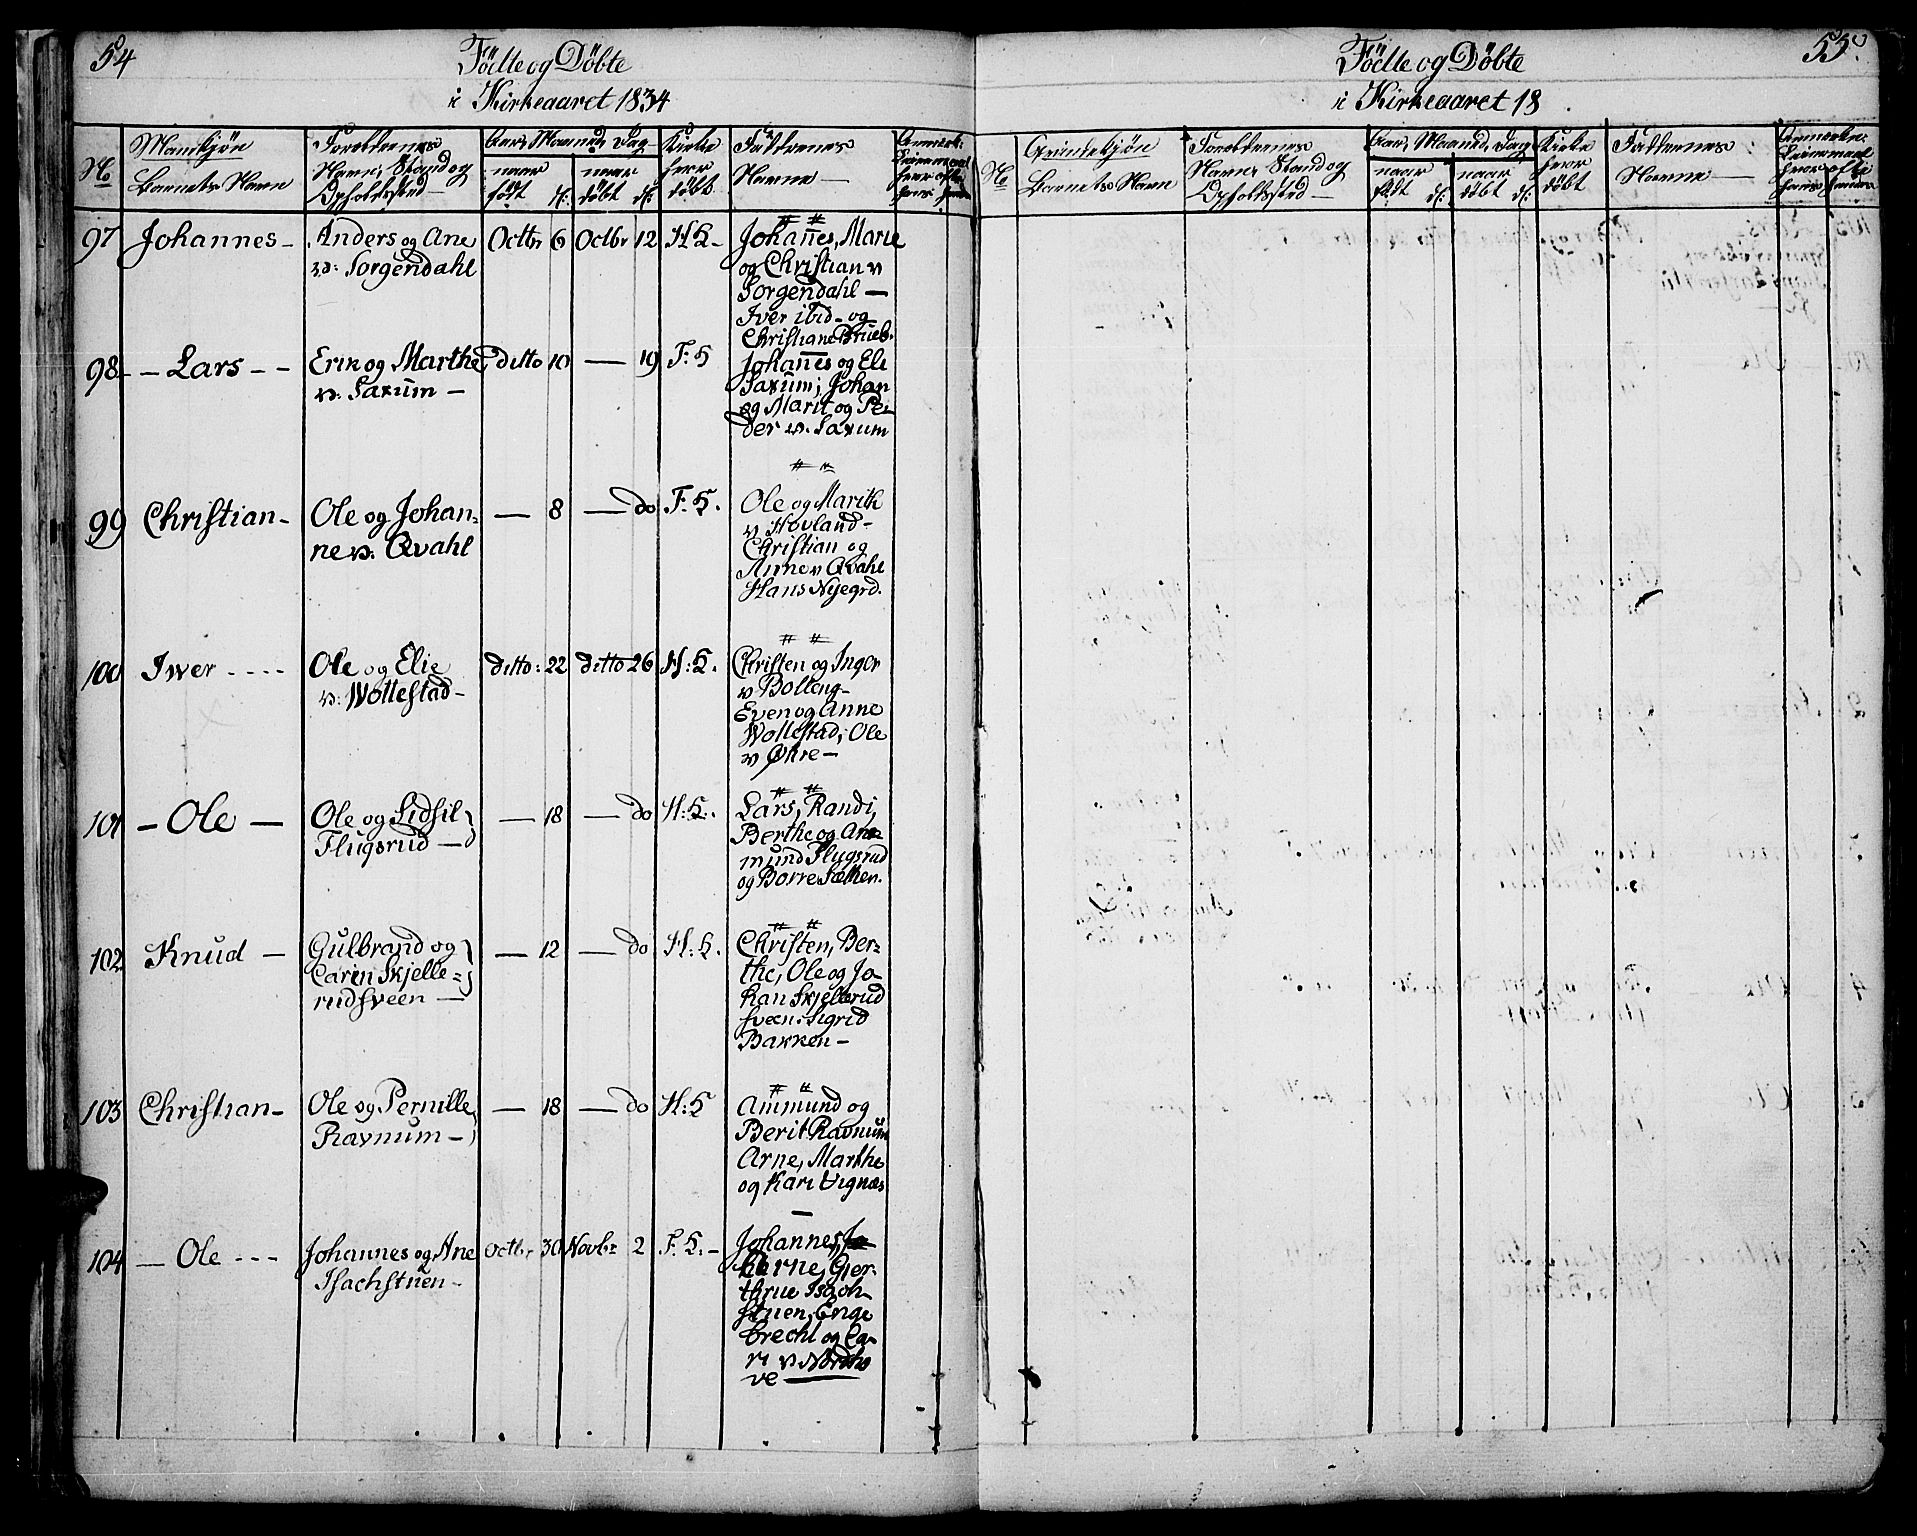 54
Födte og Döbte
i Kirkeaaret 1834
No
Mandkjön
Barnets Navn
Forældrenes
Navn, Stand og
Opholdsted
Aar, Maaned, Dag
naar
födt
naar
döbt
Kirke
hvor
döbt
Faddrenes
Navne —
97
Johannes -
Anders og Ane
v: Sorgendahl
Octbr 6
Octbr 12
H K -
Johannes, Marie
og Christian v
Sorgendahl —
Iver ibid - og
Christiane Brueb.
98 -
- Lars - -
Eric og Marthe
v: Saxum -
ditto 10
— 19
F: K
Johannes og Eli
Saxum; Johan
og Marit og Pe-
der v. Saxum
99
Christian -
Ole og Johan=
ne v: Qvahl
— 8
— do
F. K.
Ole og Marith
v Hovland -
Christian og
Anne v Qvahl
Hans Nyegrd.
100
Iwer - - - -
Ole og Elie
v: Wollestad -
ditto: 22
ditto 26
H: K.
Christen og Inger
v Bolteng -
Even og Anne
Wollestad; Ole
v Økre -
101
- Ole —
Ole og Sidsil
Flugsrud —
— 18
— do
H: K.
Lars, Randi,
Berthe og An-
mund Flugsrud
og Borre Sæthen.
102
Knud —
Gulbrand og
Carin Skjelle=
rudsveen —
— 12
— do
H: K.
Christen, Ber-
the, Ole og Jo-
han Skjellerud
sveen. Sigrid
Bakken -
103
Christian -
Ole og Pernille
Ravnum -
— 18
— do
H: K
Ammund og
Berit Ravnum
Arne, Marthe
og Kari Vignæs
104
— Ole - - -
Johannes og Ane
Isachstuen -
Octbr 30
Novbr 2
F. K. -
Johannes,
Gjer-
thrue Isach
stuen, Enge
brecht og Ca-
ri v Nordho
ve —
55.
Födte og Döbte
i Kirkeaaret 18
No
Qvindekjön
Barnets Navn
Forældrenes
Navn, Stand og
Opholdsted -
Aar, Maaned, Dag
naar
födt
naar
döbt
Kirke
hvor
döbt
Faddrenes
Navne —